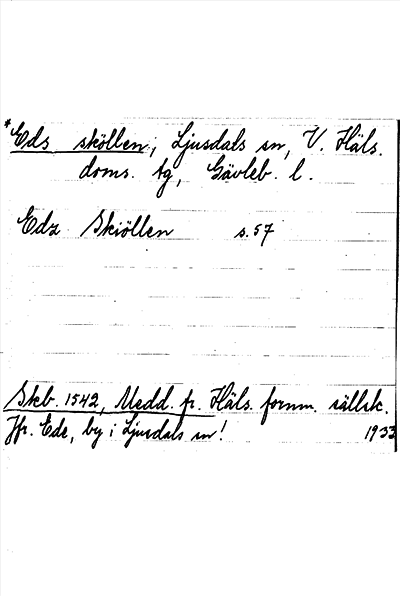 *Eds sköllen, Ljusdals sn, V. Häls.
doms. tg, Gävleb. l.
Edz Skiöllen s. 57
Skb. 1542, Medd. fr. Häls. fornm. sällsk.
Jfr. Ede, by i Ljusdals sn! 1933